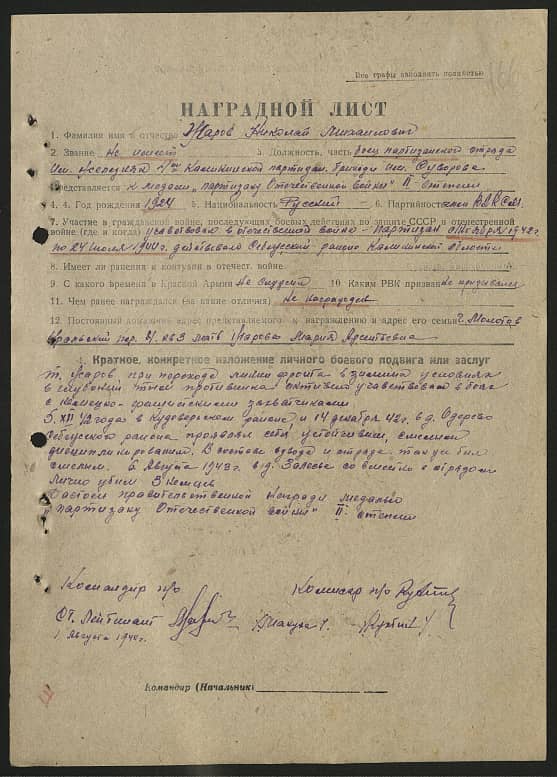 Все графы заполнять полностью
НАГРАДНОЙ ЛИСТ
1. Фамилия имя и отчество Жаров Николай Михайлович
2. Звание Не имеет 3. Должность, часть боец партизанского отряда
Им. 1ой Калининской партизан. бригады им. Суворова
Представляется к медали „партизану Отечественной войны" II степени
4. 4. Год рождения 1924 5. Национальность Русский 6. Партийность член ВЛКСМ.
7. Участие в гражданской войне, последующих боевых действиях по защите СССР и отечественной
войне (где и когда) участвовал в отечественной войне - Партизан 1942г.
по 24 июля 1944г. действовал Себежский район Калининской области
8. Имеет ли ранения и контузии в отечест. войне
9. С какого времени в Красной Армии Не служил 10 Каким РВК призван не призывался
11. Чем ранее награждался (за какие отличия) Не награждался
12. Постоянный домашний адрес представляемого к награждению и адрес его семьи г. Молотов
Уральский пер. Жарова Мария
I. Краткое, конкретное изложение личного боевого подвига или заслуг
Т. Жаров, при переходе линии фронта в зимних условиях
в глубокий тыл противника активно участвовал в боях
с немецко-фашистскими захватчиками.
5. XII 42 года в районе и 14 декабря 42г. в д.
Себежского района проявлял себя устойчивым, смелым
дисциплинированым. В составе взвода и отряда также был
смелым. 6 Августа 1943г. в д. Залесье совместно с отрядом
лично убил 3 немцев
Достоен правительственной награды медалью
„партизану Отечественной войны" II степени
Командир п/о Комиссар п/о
Ст. Лейтенант
1. Августа 194
Командир (Начальник)